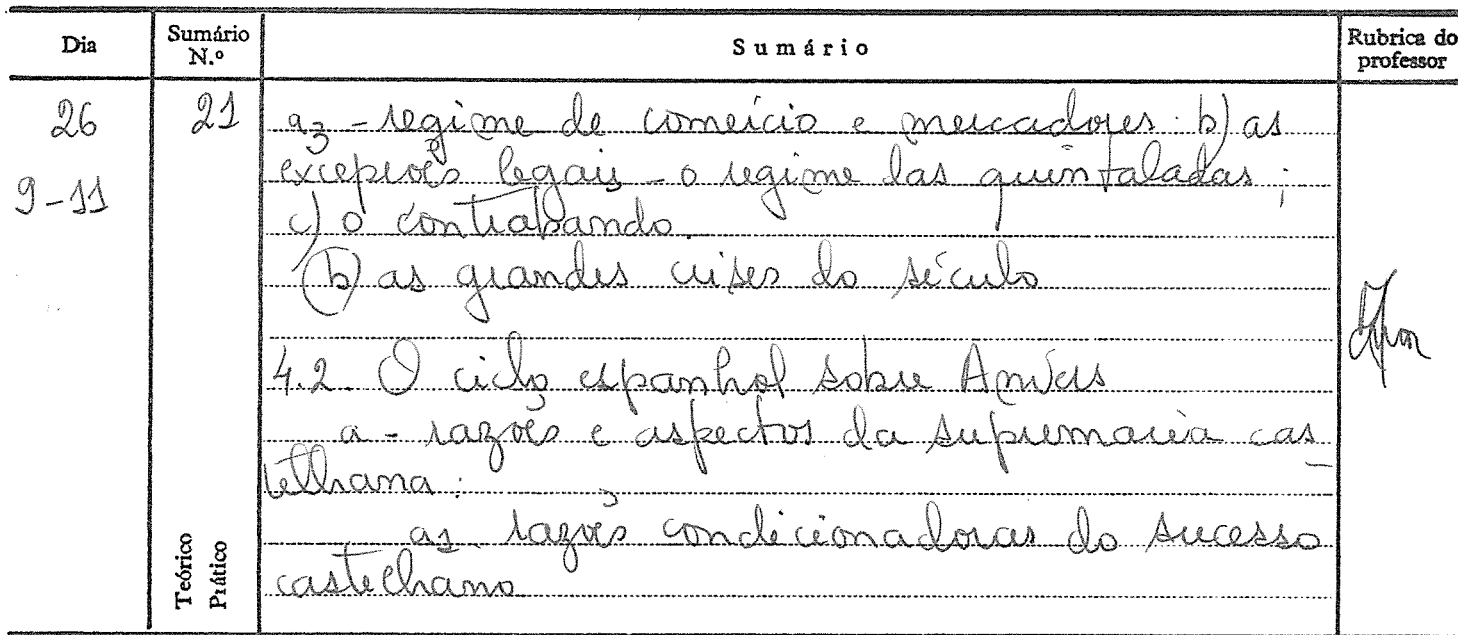 Dia Sumário N.º Sumário Rubrica do professor
26 21 a3 - regime de comércio e mercadores. b) as
excepções legais - o regime das quintaladas;
9-11
c) o contrabando.
(b) as grandes crises do século
4.2. O ciclo espanhol sobre Anvers
a - razões e aspectos da supremacia cas
telhana:
a1. razões condicionadoras do sucesso
castelhano
Teórico
Prático